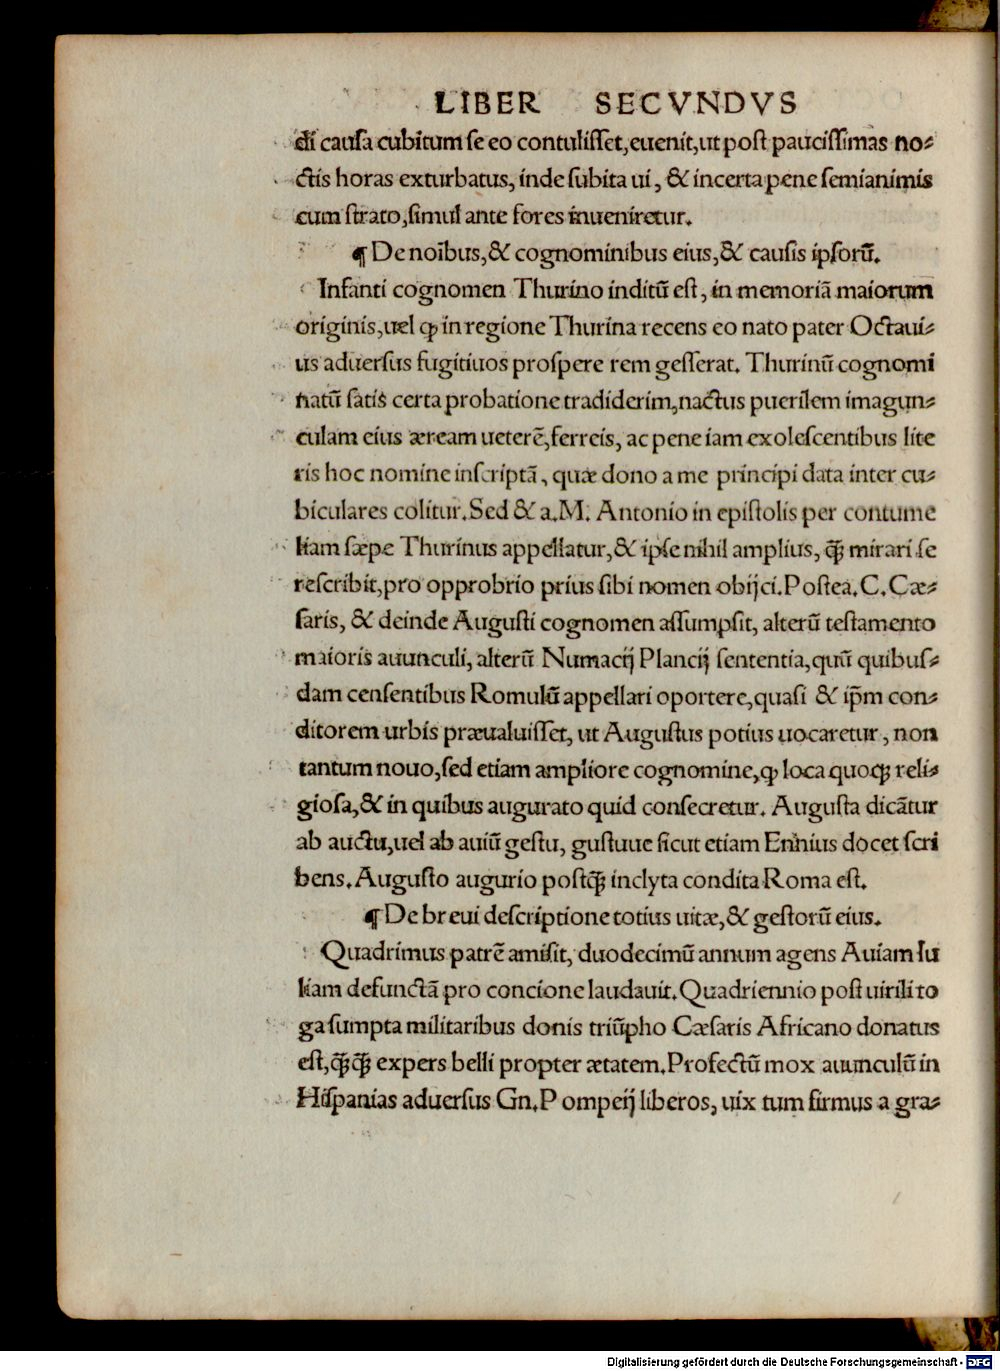 LIBER SECVNDVS
di causa cubitum se eo contulisset,euenit,ut post paucissimas no⸗
ctis horas exturbatus, inde subita ui, & incerta pene semianimis
cum strato,simul ante fores inueniretur.
¶ De noībus,& cognominibus eius,& causis ipsorū.
Infanti cognomen Thurino inditū est, in memoriā maiorum
originis,uel ꝙ in regione Thurina recens eo nato pater Octaui⸗
us aduersus fugitiuos prospere rem gesserat. Thurinū cognomi
natū satis certa probatione tradiderim,nactus puerilem imagun⸗
culam eius æream ueterē,ferreis, ac pene iam exolescentibus lite
ris hoc nomine inscriptā, quæ dono a me principi data inter cu⸗
biculares colitur.Sed & a.M. Antonio in epistolis per contume
liam sæpe Thurinus appellatur,& ipse nihil amplius, ꝙ̄ mirari se
rescribit,pro opprobrio prius sibi nomen obijci.Postea.C.Cæ⸗
saris, & deinde Augusti cognomen assumpsit, alterū testamento
maioris auunculi, alterū Numacij Plancij sententia,quū quibus⸗
dam censentibus Romulū appellari oportere,quasi & ip̄m con⸗
ditorem urbis præualuisset, ut Augustus potius uocaretur, non
tantum nouo,sed etiam ampliore cognomine,ꝙ loca quoqꝫ reli⸗
giosa,& in quibus augurato quid consecretur. Augusta dicātur
ab auctu,uel ab auiū gestu, gustuue sicut etiam Ennius docet scri
bens.Augusto augurio postꝙ̄ inclyta condita Roma est.
¶ De breui descriptione totius uitæ,& gestorū eius.
Quadrimus patrē amisit, duodecimū annum agens Auiam Iu
liam defunctā pro concione laudauit.Quadriennio post uirili to
ga sumpta militaribus donis triūpho Cæsaris Africano donatus
est,ꝙ̄ꝙ̄ expers belli propter ætatem.Profectū mox auunculū in
Hispanias aduersus Gn.Pompeij liberos, uix tum firmus a gra⸗
Digitalisierung gefördert durch die Deutsche Forschungsgemeinschaft - DFG